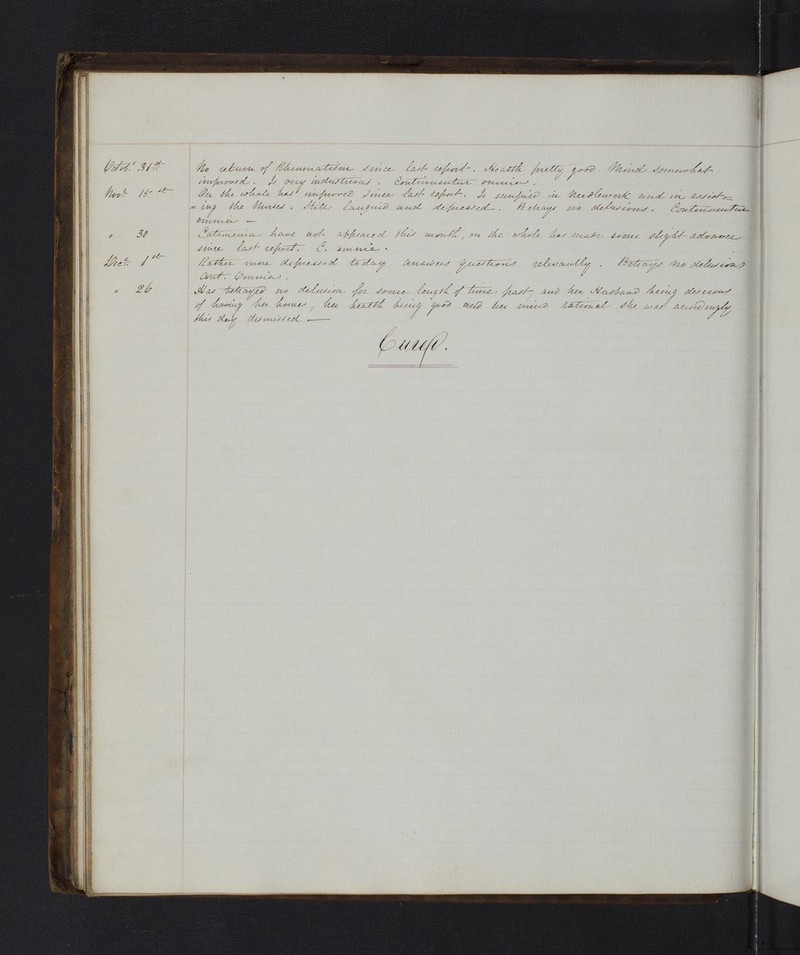 Octob.r 31st No return of Rheumatism since last report. Health pretty good. Mind somewhat
improved. Is very industrious. Continuentur omnia.
Novr. 15st On the whole has improved since last report. Is occupied in Needlework and in assist=
=ing the Nurses. Still languid and depressed. Betrays no delusions. Continuentur
omnia —
" 30 Catamenia have not appeared this month, on the whole has made some slight advance
since last report. C. omnia.
Decr. 1st Rather more depressed today answers questions relevantly. Betrays no delusions
Cont. Omnia.
" 26 Has betrayed no delusion for some length of time past, and her Husband being desirous
of having her home, her health being good and her mind rational she was accordingly
this day dismissed —
Cured.